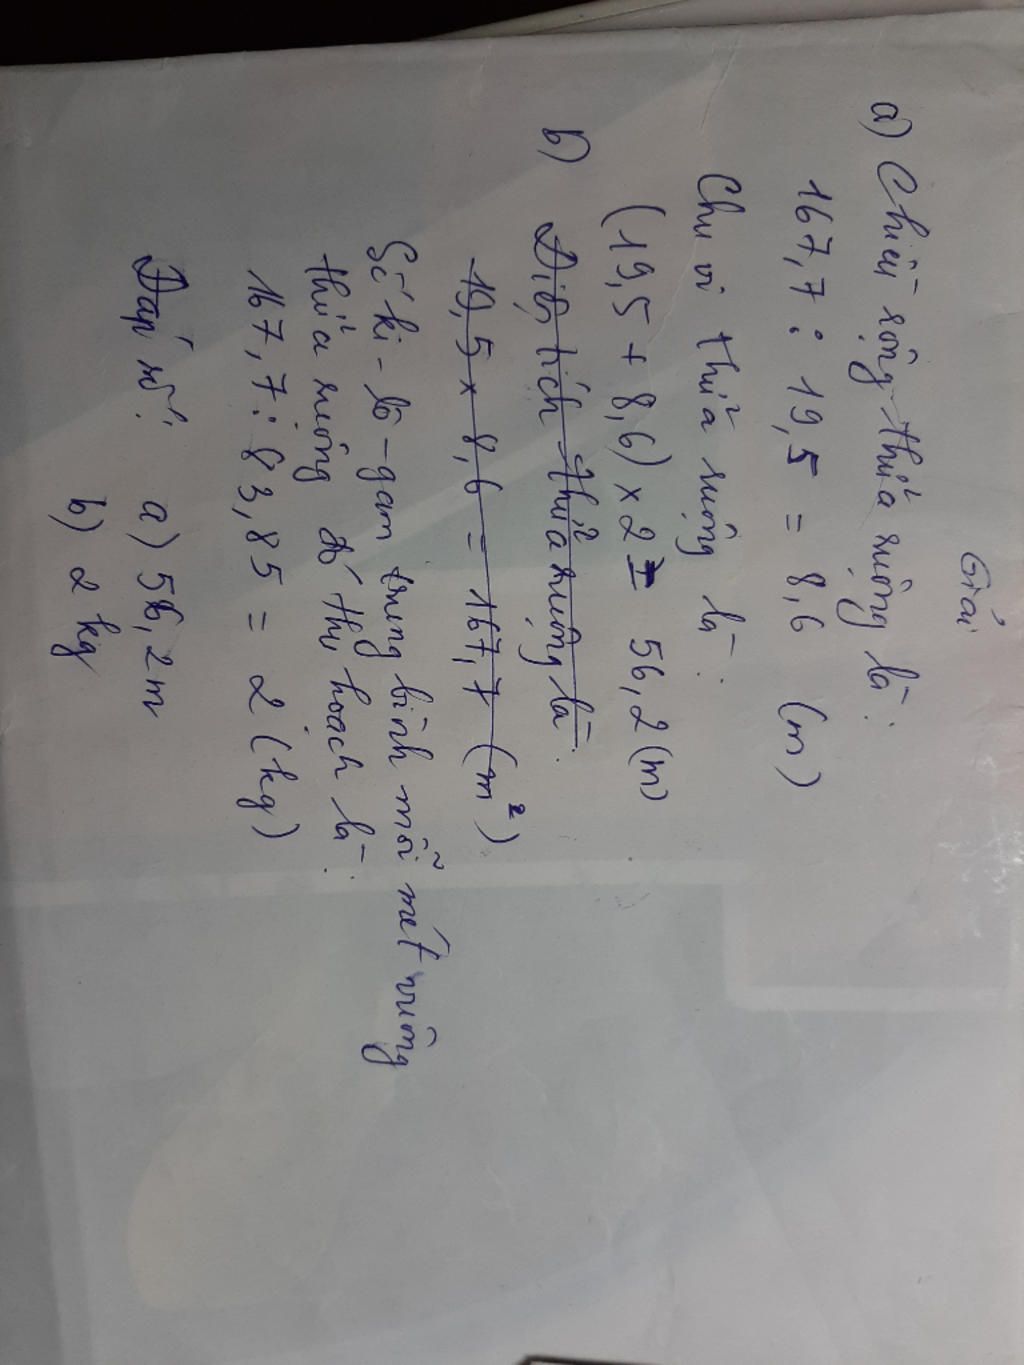 Giải
a) Chiều rộng thửa ruộng là:
167,7 : 19,5 = 8,6 (m)
Chu vi thửa ruộng là:
(19,5 + 8,6) x 2 = 56,2 (m)
b) Diện tích thửa ruộng là:
19,5 x 8,6 = 167,7 (m²)
Số ki-lô-gam trung bình mỗi mét vuông
thửa ruộng đó thu hoạch là:
167,7 : 83,85 = 2 (kg)
Đáp số: a) 56,2m
b) 2 kg